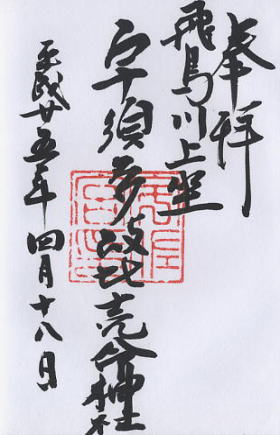 奉拝
飛鳥川上坐
宇須多岐比売命神社
平成廿五年四月十八日